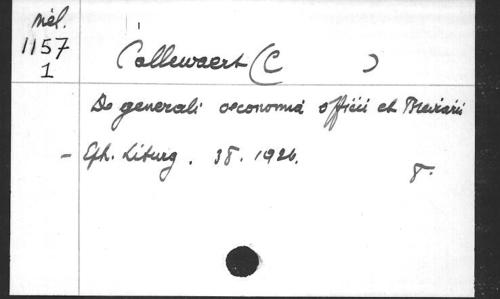 Mél.
1157
1
Callewaert (C )
De generali oeconomia officii et Breviarii
- Eph. Liturg. 38. 1926.
8.